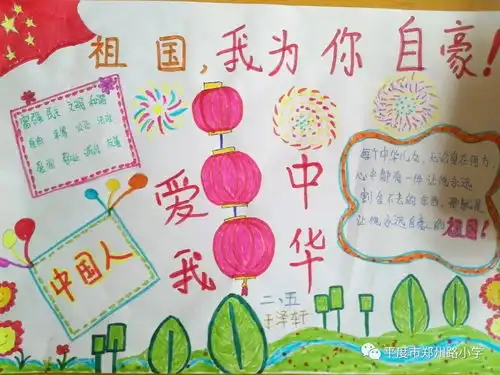 祖国,我为你自豪!
富强 民主 文明 和谐
自由 平等 公正 法治
爱国 敬业 诚信 友善
中国人
爱我
中华
每个中华儿女,无论身在何方,
心中都有一份让他永远
割舍不去的东西,那就是
让他永远自豪的祖国!
二、五
于泽轩
平度市郑州路小学